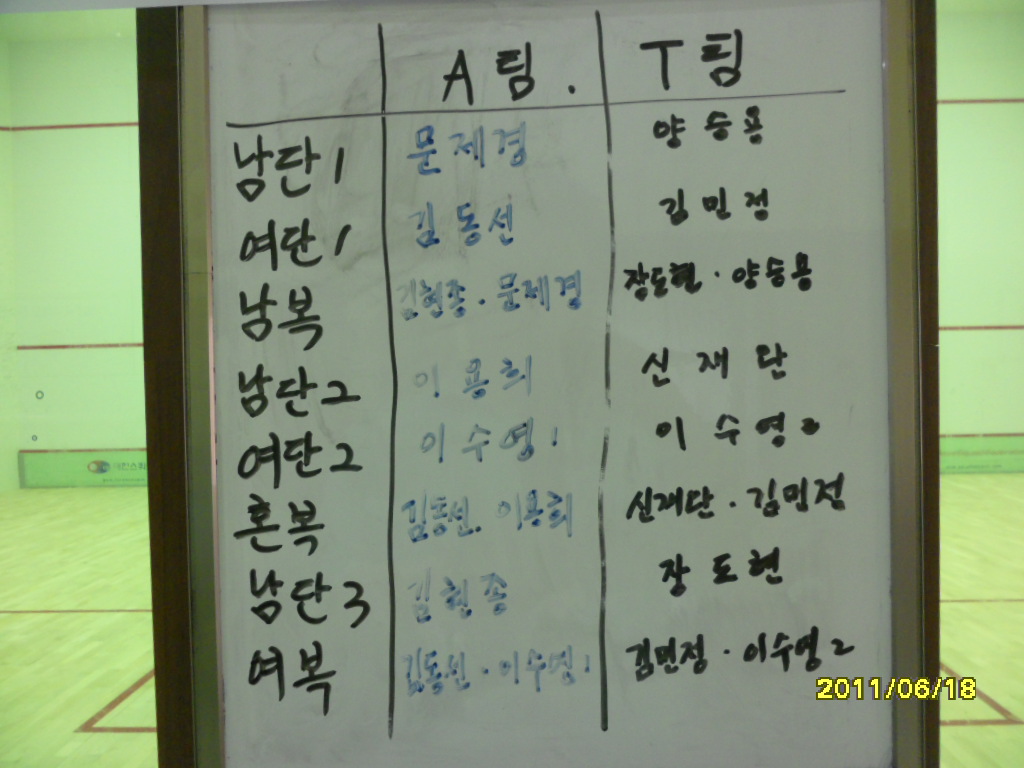 A팀. T팀
남단1 문제경 양승용
여단1 김동선 김민정
남복 김현종·문제경 장도현·양승용
남단2 이용희 신재단
여단2 이수영1 이수영2
혼복 김동선. 이용희 신재단·김민정
남단3 김현종 장도현
여복 김동선·이수영1 김민정·이수영2
2011/06/18